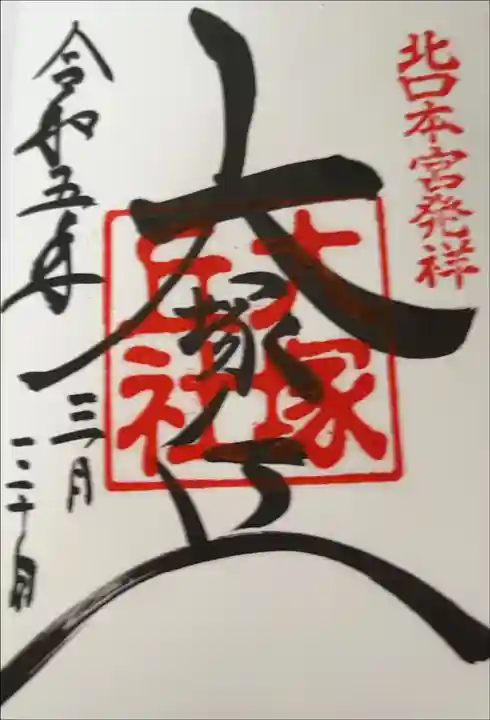 北口本宮発祥
大塚丘
大塚
丘社
令和五年
三月
二十日